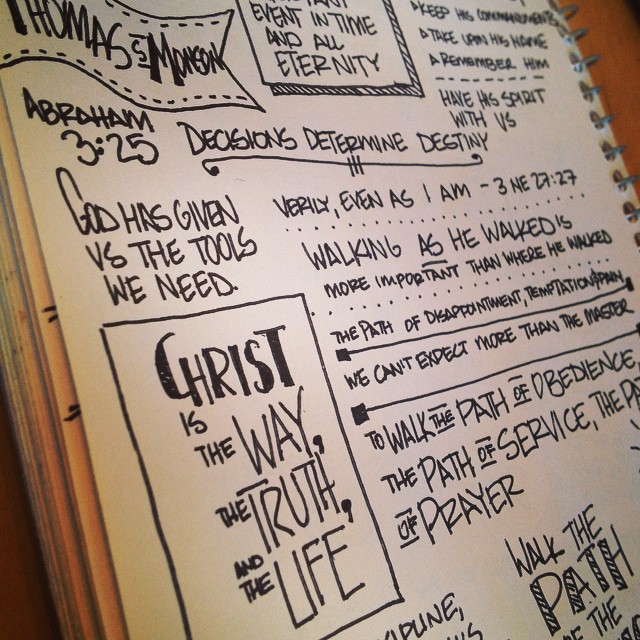 THOMAS S MONSON
EVENT IN TIME
AND ALL
ETERNITY
KEEP HIS COMMANDMENTS
TAKE UPON HIS NAME
REMEMBER HIM
HAVE HIS SPIRIT
WITH US
ABRAHAM
3:25
DECISIONS DETERMINE DESTINY
GOD HAS GIVEN
US THE TOOLS
WE NEED.
VERILY, EVEN AS I AM - 3 NE 27:27
WALKING AS HE WALKED IS
MORE IMPORTANT THAN WHERE HE WALKED
THE PATH OF DISAPPOINTMENT, TEMPTATION, PAIN
WE CAN'T EXPECT MORE THAN THE MASTER
CHRIST
IS
THE WAY,
THE TRUTH,
AND THE LIFE
TO WALK THE PATH OF OBEDIENCE,
THE PATH OF SERVICE, THE
OF PRAYER
WALK THE
PATH
THE